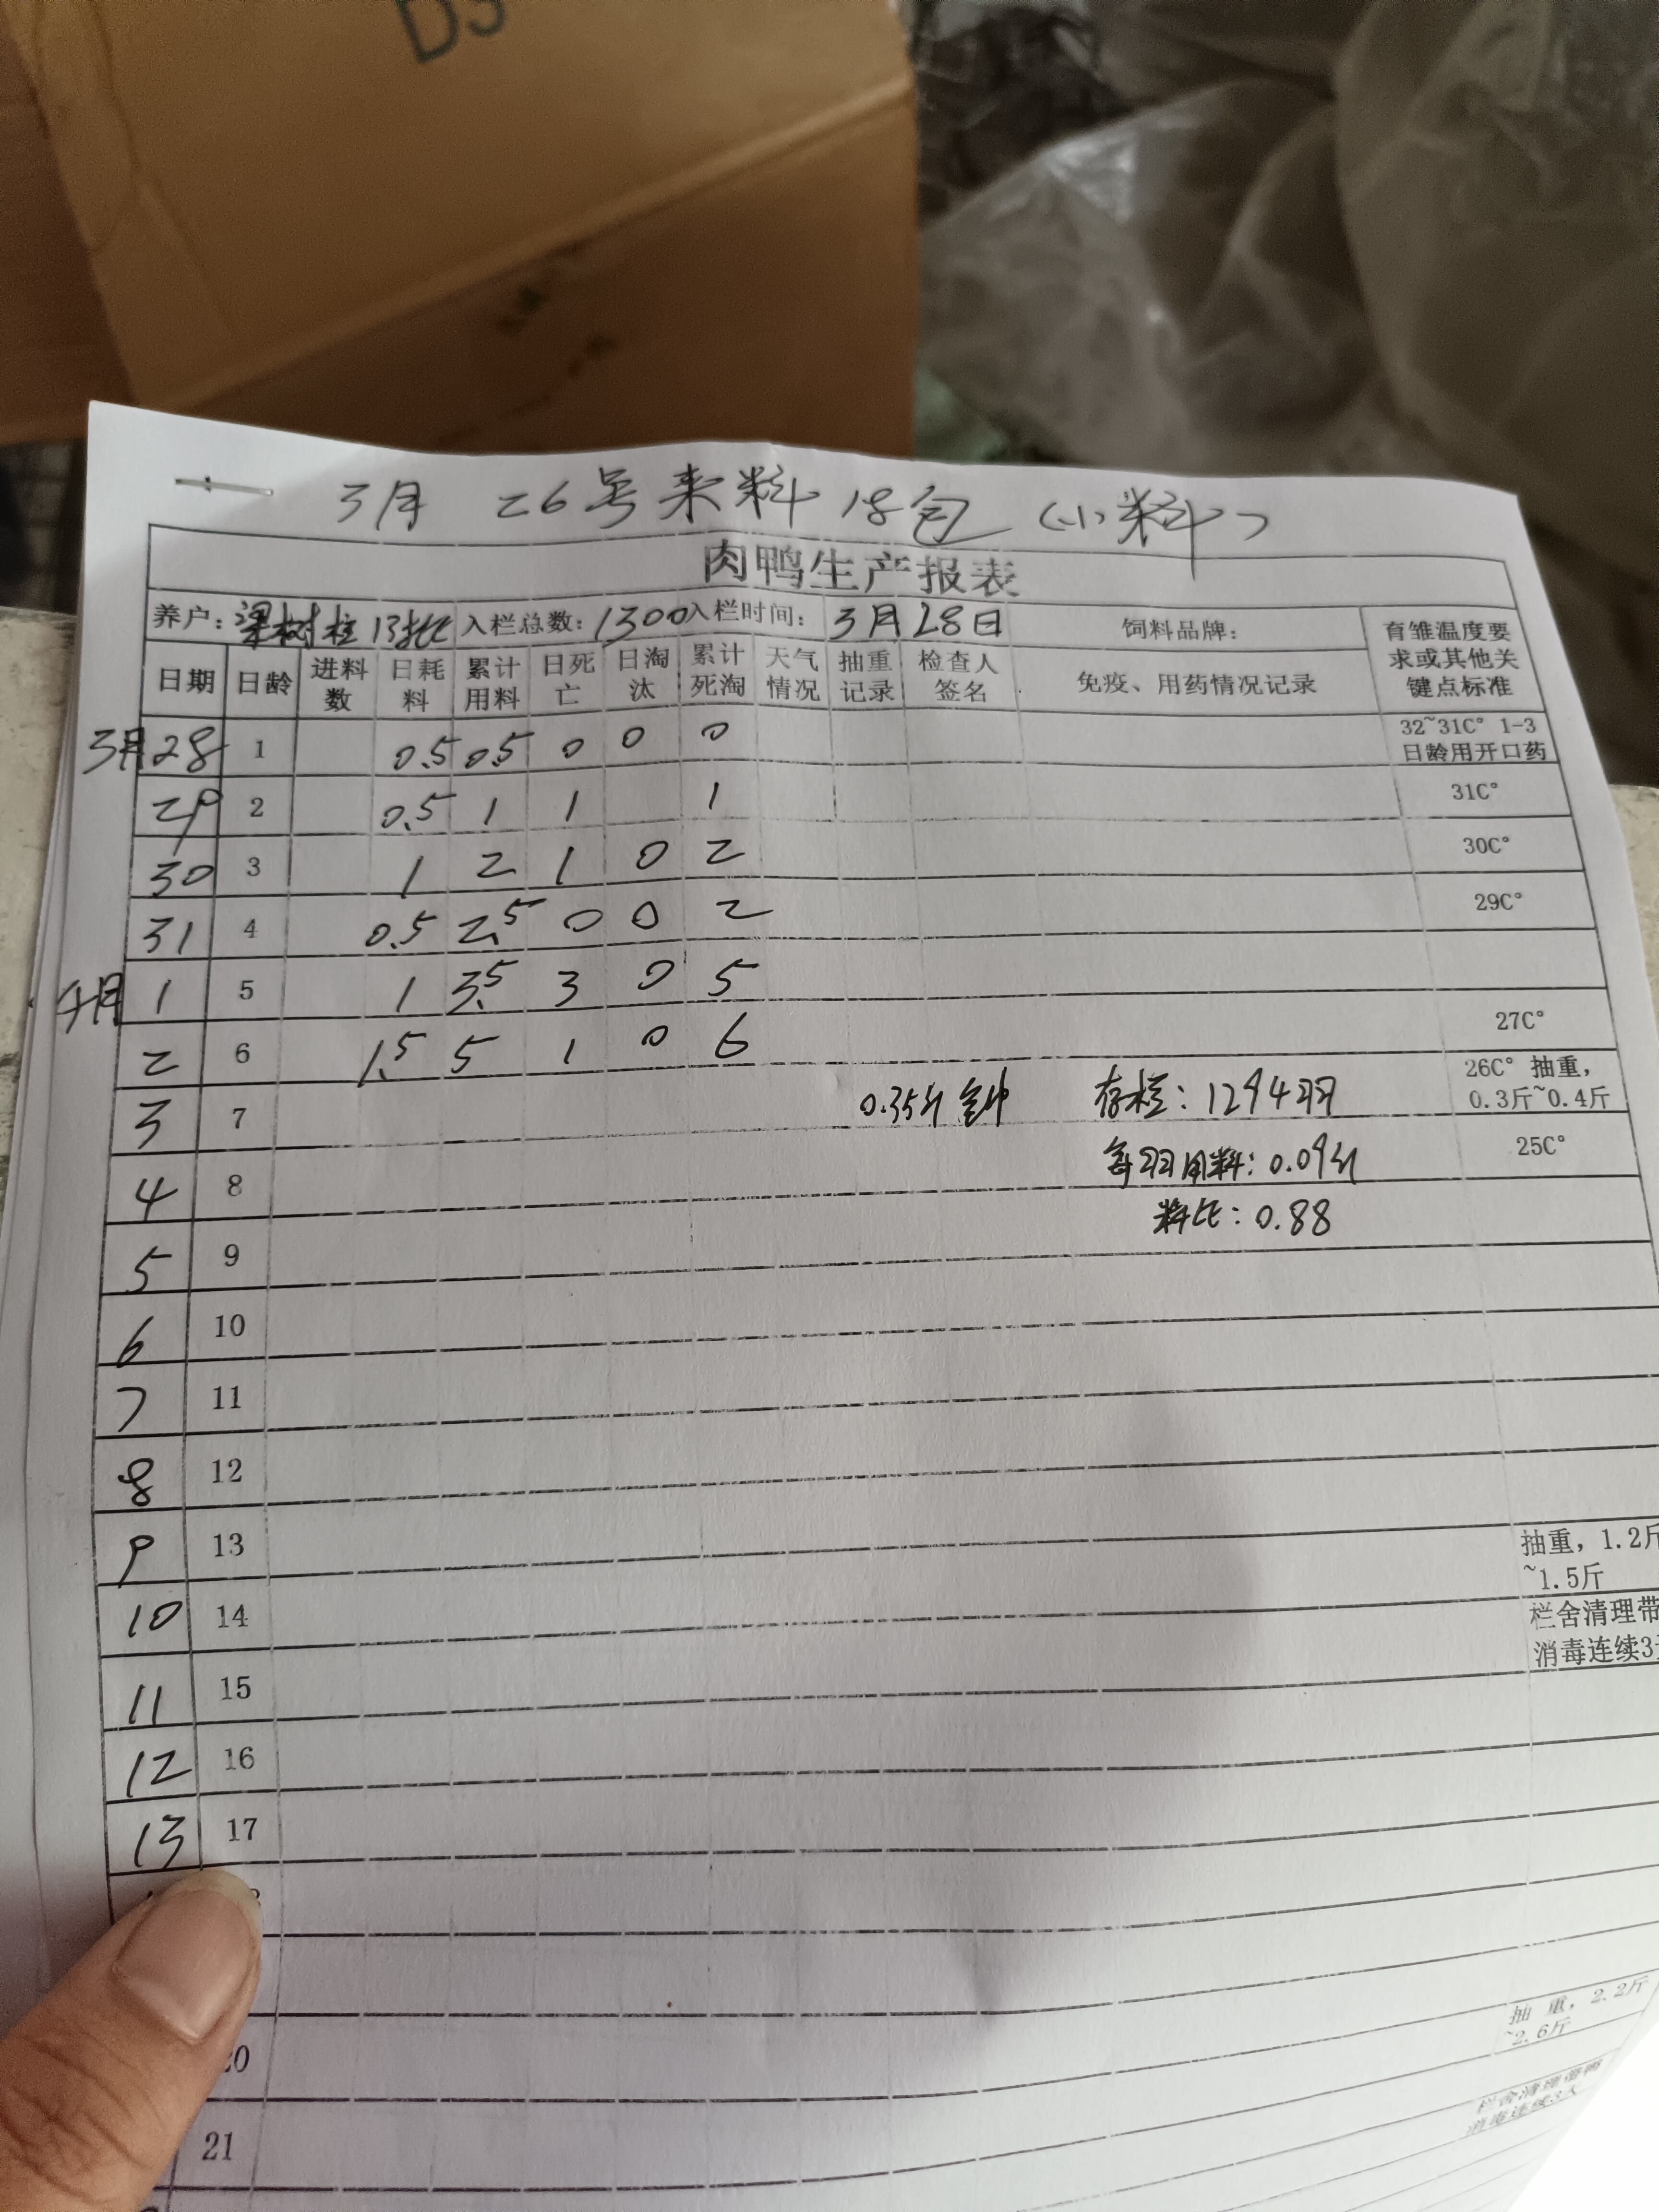 D5
3月 26号来料 18包 (小料)
肉鸭生产报表
养户: 梁树柱 13批 入栏总数: 1300 入栏时间: 3月28日 饲料品牌: 育雏温度要求或其他关键点标准
日期 日龄 进料数 日耗料 累计用料 日死亡 日淘汰 累计死淘 天气情况 抽重记录 检查人签名 免疫、用药情况记录
3月28 1 0.5 0.5 0 0 0 32~31C° 1-3日龄用开口药
29 2 0.5 1 1 1 31C°
30 3 1 2 1 0 2 30C°
31 4 0.5 2.5 0 0 2 29C°
4月 1 5 1 3.5 3 0 5
2 6 1.5 5 1 0 6 27C°
3 7 0.35斤 存栏: 1294羽 26C° 抽重, 0.3斤~0.4斤
4 8 每羽用料: 0.09斤 25C°
料比: 0.88
5 9
6 10
7 11
8 12
9 13 抽重, 1.2斤~1.5斤
10 14 栏舍清理带
消毒连续3
11 15
12 16
13 17
20 抽 重, 2.2斤~2.6斤
21 栏舍清理带
消毒连续3